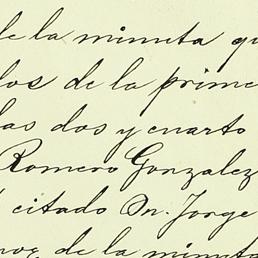 de la minuta qu
los de la prime
las dos y cuarto
Romero Gonzalez
citado Dn. Jorge
de la minuta